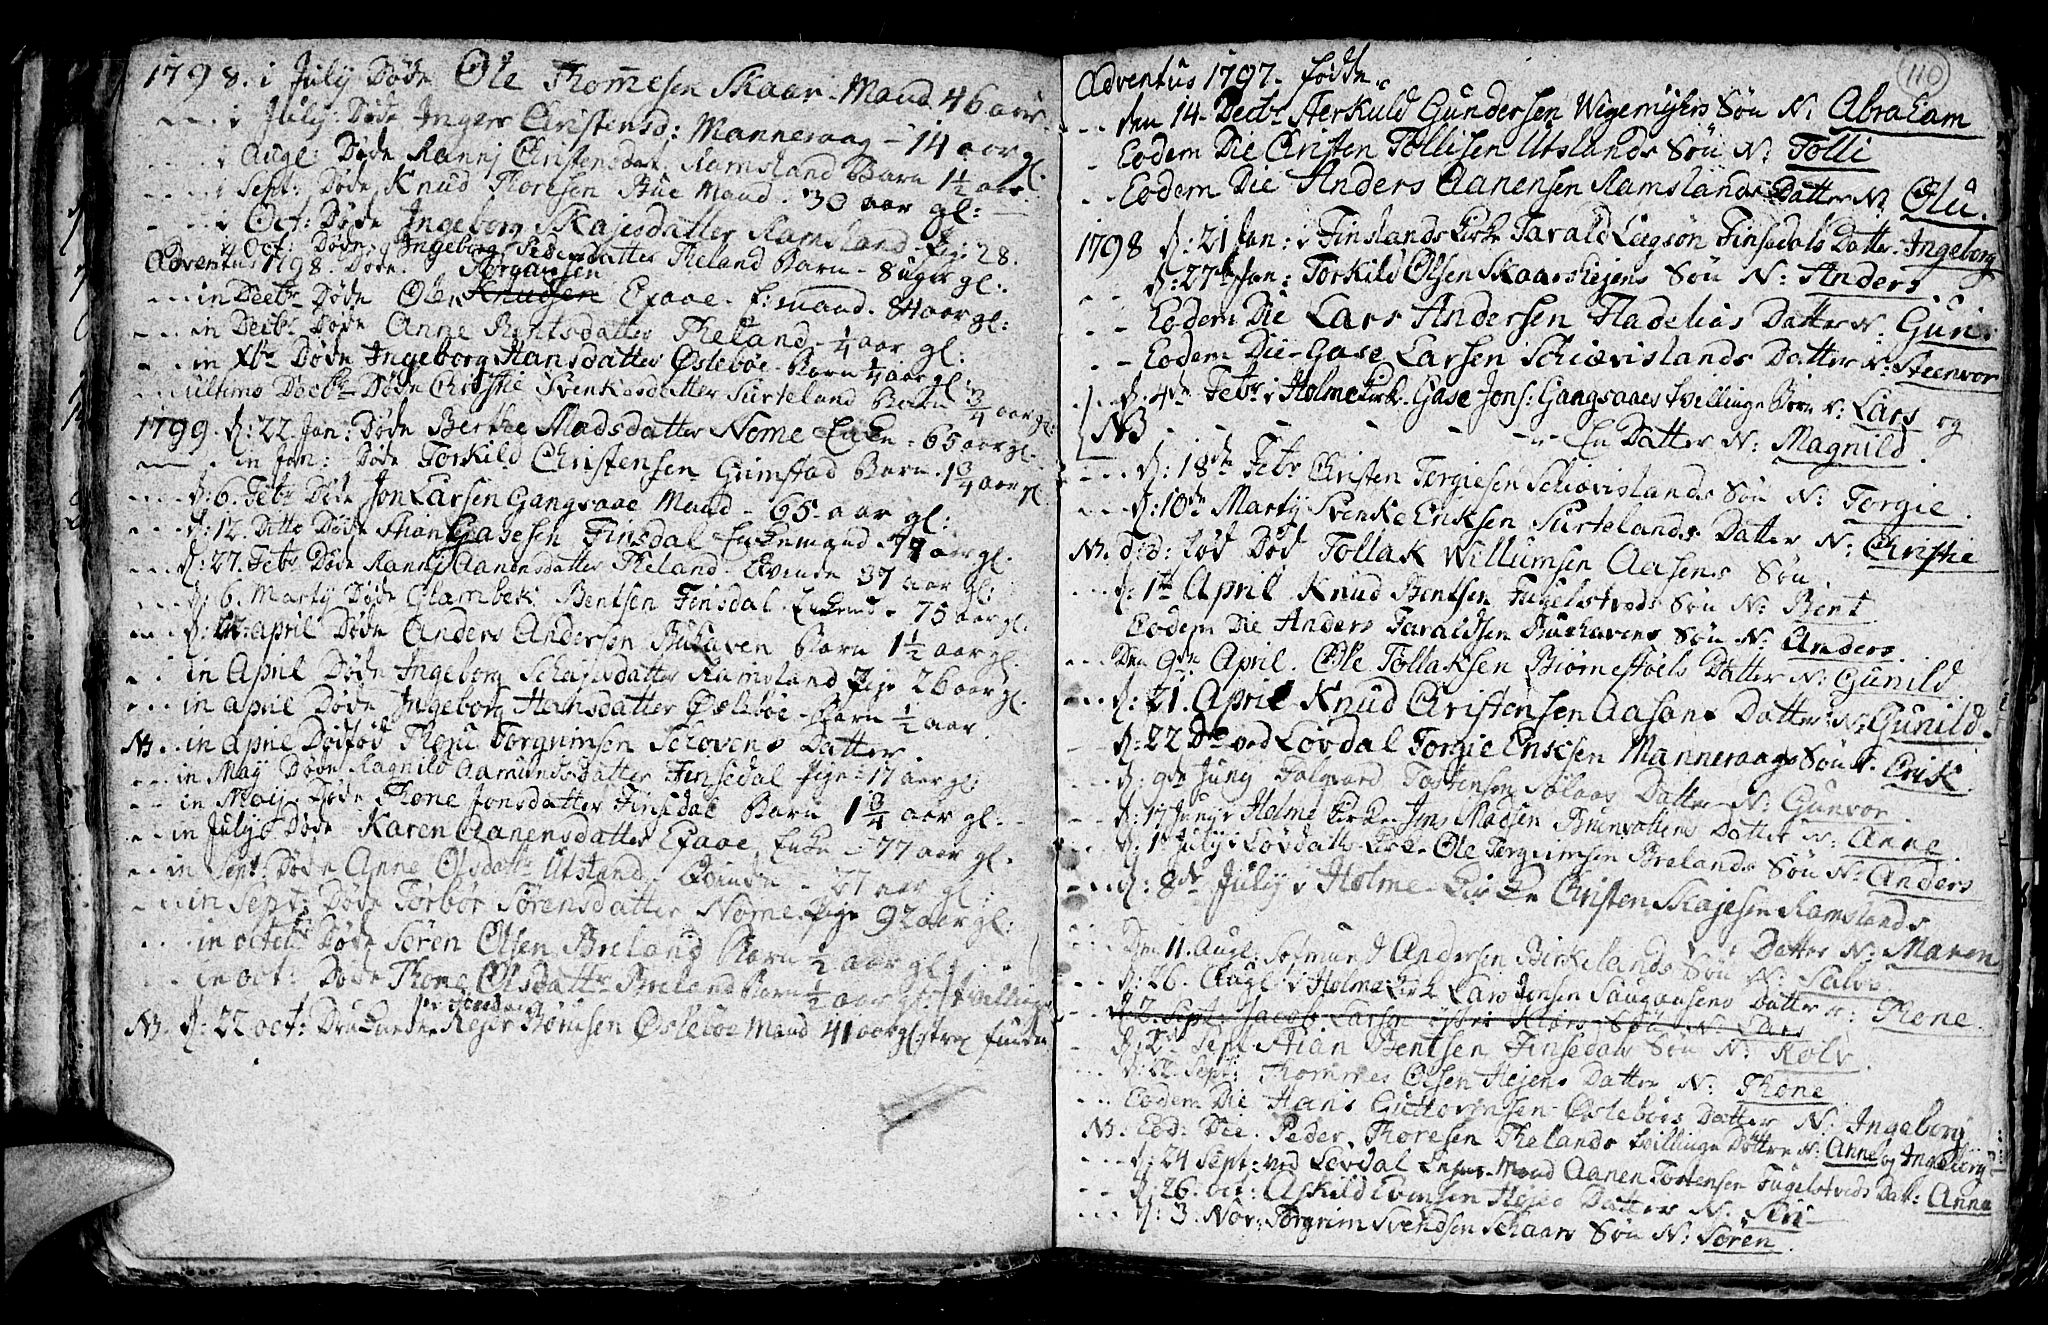 1798. i July Døde Ole Thommesen Skaar - Mand 46 aar.
i July: Døde Inger Christensd: Manneraag - 14 aar gl.
i Augl: Døde Rannj Christensdat. Ramsland Barn 1 1/2 aar
i Sept: Døde Knud Thoresen Bue Mand. 30 aar gl:
i Oct: Døde Ingeborg Skajesdatter Ramsland Pige 28.
Oct: Døde Ingeborg Pedersdatter Theland Barn - 8 uger gl:
Adventus 1798. Døde.
in Decbr Døde Ole Jørgensen Efaae. f: mand. 84 aar gl:
in Decbr Døde Anne Berntsdatter Theland - 1/4 aar gl:
in Xbr Døde Ingeborg Hansdatter Øslebøe - Barn 1/4 aar gl:
ultimo Decbr Døde Christhe Svenkesdatter Surteland Barn 3/4 aar gl:
1799. d: 22 Jan: Døde Berthe Madsdatter Nome Enke - 65 aar gl.
in Jan: Døde Torkild Christensen Grimstad Barn. 1 3/4 aar gl
d: 6. Febr Døde Jon Larsen Gangsaae Mand - 65 - aar gl:
d: 12. Ditto Døde Gabesen Finsdal Enkemand 79 aar gl.
d: 27. Febr Døde Ranni Aanensdatter Theland - Qvinde 37 aar gl:
d: 6. Martij Døde Stambek Bentsen Finsdal. Enkemd - 75 aar gl.
d: april Døde Anders Andersen Buhaven Barn 1 1/2 aar gl.
in April Døde Ingeborg Schajesdatter Ramsland Pige 26 aar gl.
in april Døde Ingeborg Hansdatter Øslebøe - Barn 1/2 aar
NB. in April Dødfød Thore Torgrimsen Schovens Datter
in Maij Døde Ragnild Aamundsdatter Finsedal Pige - 17 aar gl:
in Maij Døde Thone Jonsdatter Finsdal Barn 1 3/4 aar gl:
in July Døde Karen Aanensdatter Efaae Enke - 77 aar gl.
in Sept: Døde Anne Olsdattr Utsland. Qvinde - 27 aar gl:
in Sept: Døde Torbor Sørensdatter Nome. Pige 92 aar gl:
in octobr Døde Søren Olsen Breland Barn 1/2 aar gl:
in oct: Døde Thone Olsdattr Breland Barn 1/2 aar gl: tvillinger
NB. d: 22 oct: Druknede Rejer Tønnesen Øslebøe Mand 41 aar gl. strax funden
110
Adventus 1797. fødde.
den 14. Decbr Herkuld Gundersen Wigemyhrs Søn N: Abraham
Eodem Die Christen Tollisen Utslands Søn N: Tolli
Eodem Die Anders Aanensen Ramslands Datter N: Olu.
1798 d: 21 Jan: i Finslands Kirke Tarald Finsedals Datter Ingeborg
d: 27de Jan: Torkild Olsen Skaarshejens Søn N: Anders
Eodem Die Lars Andersen Fladelias Datter N. Guri.
Eodem Die - Gase Larsen Schiævislands Datter N: Steenvor
d: 4de Febr i Holme Kirk. Gase Jons: Gangsaaes tvillinge Børn N: Lars og
NB - - - En Datter N: Magnild.
d: 18de Febr Christen Torgiesen Schiævislands Søn N: Torgie.
d: 10de Martij Svenke Eriksen Surtelands Datter N: Christhe
NB. død fød Tollak Willumsen Aasens Søn
d: 1te April Knud Bentsen Fuglestveds Søn N: Bent
Eodem Die Anders Taraldsen Buehavens Søn N. Anders
Den 9de April. Ole Tollaksen Biørnestøels Datter N: Gunild
d: 21. April Knud Christensen Aasens Datter N: Gunild.
d: 22 Do ved Løvdal Torgie Eriksen Manneraags Søn N. Erik
d 9de Junij Folqvard Tostensen Datter N: Gunvor.
d: 17 Junij i Holme Kirke Jens Madsen Brunvattens Datter N: Anne.
d: 1te July i Løvdals Kir Ole Torgrimsen Brelands Søn N: Anders
d: 8de July i Holme Kirke Christen Skajesen Ramslands
Datter N: Maren
Den 11. Augl: Andersen Birkelands Søn N. Salve
d: 26. Augl i Holme Kirk Lars Jensen Datter N: Thone.
d 2. Sept: Jacob Larsen Søn N: Lars
d: 2d Sept Stian Bentsen Finsedals Søn N: Rolv.
d: 22. Sept: Thommes Olsen Hejens Datter N: Thone
Eodem Die Hans Guttormsen Øslebøes Datter N. Ingeborg
NB. Eod: Die. Peder Thoresen Thelands tvillinge Døttre N: Anne og Ingeborg
d: 24 Sept: ved Løvdal Mand Aanen Tostensen Fuglestveds Datt: Anna
d: 26. oct: Askild Evensen Hejes Datter N. Siri
d: 3. Nov: Torgrim Svendsen Schaars Søn N: Søren.